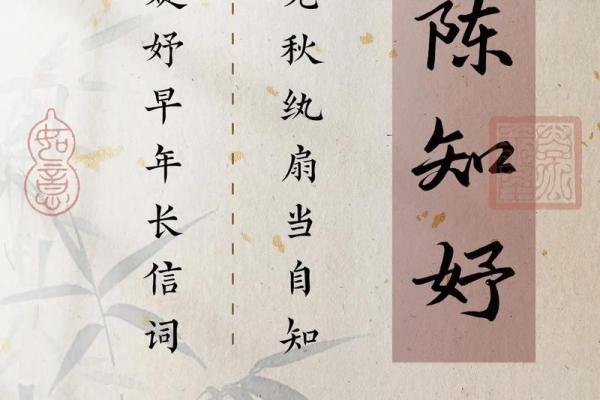 陈知妤
秋纨扇当自知
妤早年长信词
如意